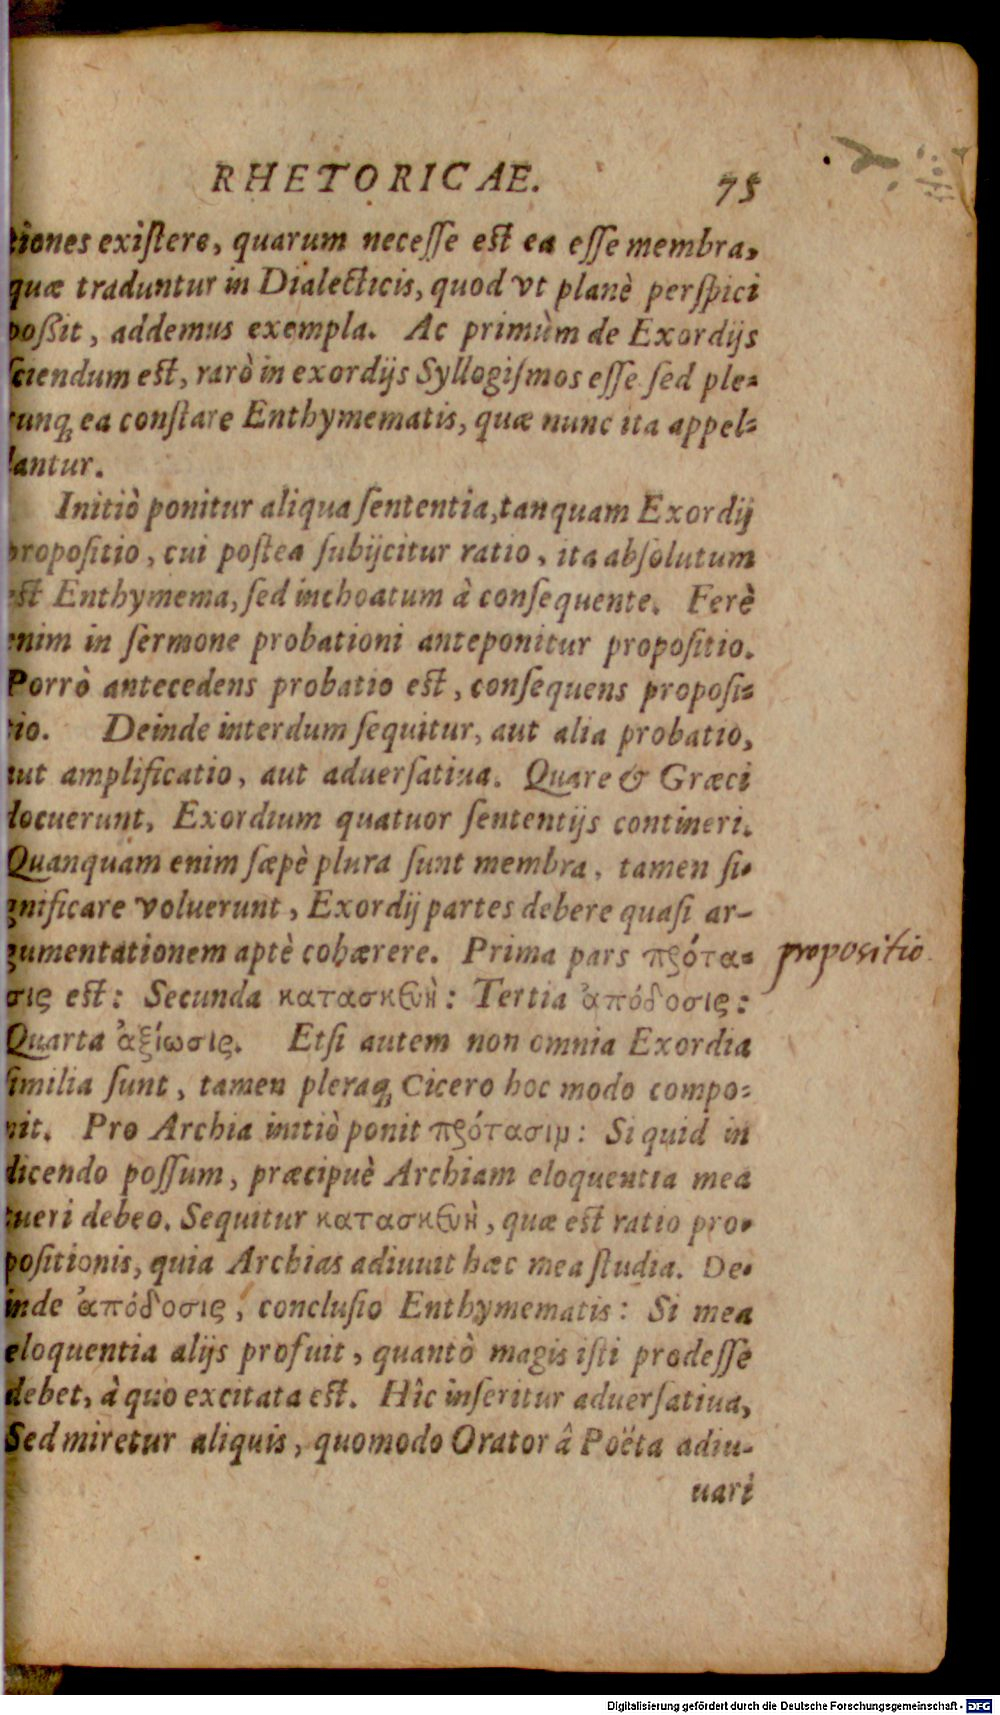 RHETORICAE. 75
tiones exiſtere, quarum neceſſe est ea eſſe membra,
quæ traduntur in Dialecticis, quod vt planè perſpici
poßit, addemus exempla. Ac primùm de Exordijs
ſciendum est, rarò in exordijs Syllogiſmos eſſe ſed ple⸗
runq́ ea conſtare Enthymematis, quæ nunc ita appel⸗
lantur.
Initiò ponitur aliqua ſententia, tanquam Exordij
propoſitio, cui poſtea ſubijcitur ratio, ita abſolutum
est Enthymema, ſed inchoatum à conſequente. Ferè
enim in ſermone probationi anteponitur propoſitio.
Porrò antecedens probatio est, conſequens propoſi⸗
tio. Deinde interdum ſequitur, aut alia probatio,
aut amplificatio, aut aduerſatiua. Quare & Græci
docuerunt, Exordium quatuor ſententijs contineri.
Quanquam enim ſæpè plura ſunt membra, tamen ſi-
gnificare voluerunt, Exordij partes debere quaſi ar-
gumentationem aptè cohærere. Prima pars πρότα⸗ propositio.
σις est: Secunda κατασκευὴ: Tertia ἀπόδοσις:
Quarta ἀξίωσις. Etſi autem non omnia Exordia
ſimilia ſunt, tamen pleraq́ Cicero hoc modo compo⸗
nit. Pro Archia initiò ponit πρότασιμ: Si quid in
dicendo poſſum, præcipuè Archiam eloquentia mea
tueri debeo. Sequitur κατασκευὴ, quæ est ratio pro-
poſitionis, quia Archias adiuuit hæc mea ſtudia. De-
inde ἀπόδοσις, concluſio Enthymematis: Si mea
eloquentia alijs profuit, quantò magis iſti prodeſſe
debet, à quo excitata est. Hîc inſeritur aduerſatiua,
Sed miretur aliquis, quomodo Orator â Poëta adiu-
uari
Digitalisierung gefördert durch die Deutsche Forschungsgemeinschaft - DFG